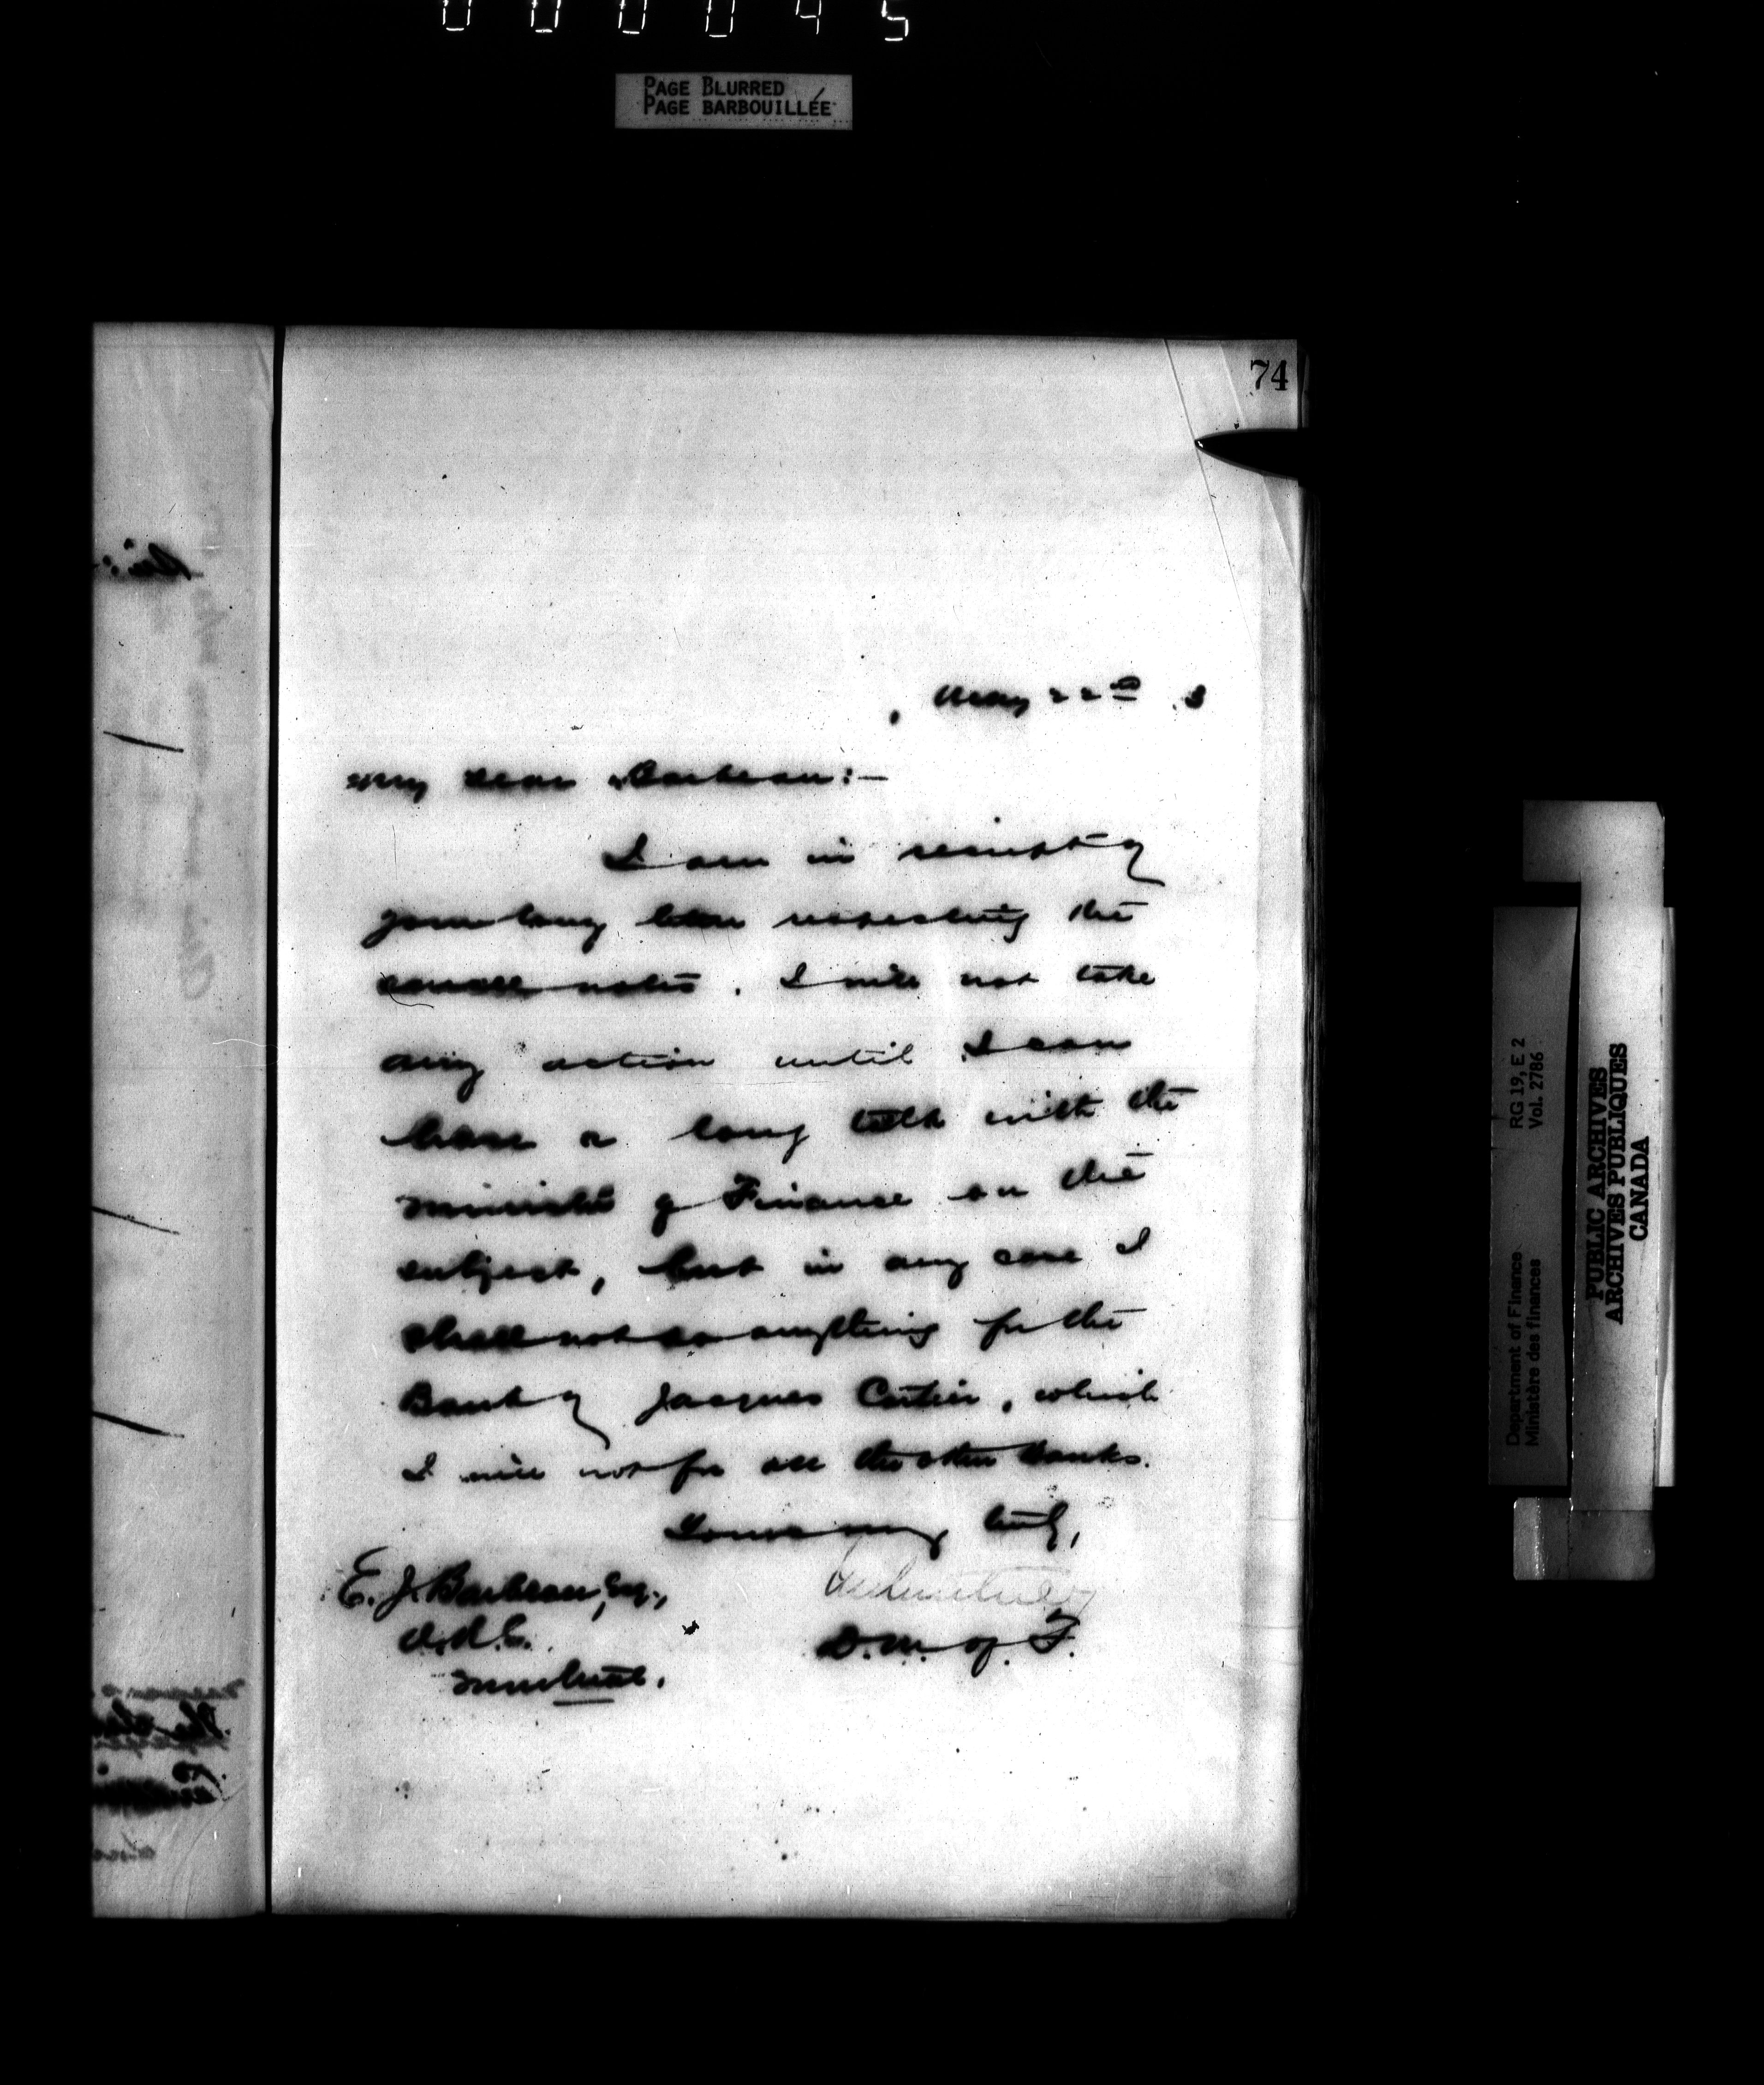 000045
PAGE BLURRED
PAGE BARBOUILLÉE
74
, May 22nd .3
My dear Barbeau:—
I am in receipt of
your long letter respecting the
small notes. I will not take
any action until I can
have a long talk with the
Minister of Finance on the
subject, but in any case I
shall not do anything for the
Bank of Jacques Cartier, which
I will not for all the other banks.
Yours very truly,
E. J. Barbeau, Esq.,
Montreal.
D.M. of F.
Department of Finance RG 19, E 2
Ministère des finances Vol. 2786
PUBLIC ARCHIVES
ARCHIVES PUBLIQUES
CANADA